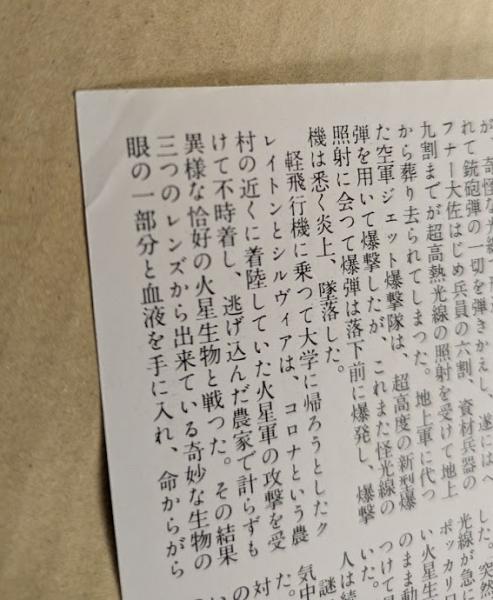 が、奇怪な光線
れて銃砲弾の一切を弾きかえし、遂にはヘ
フナー大佐はじめ兵員の六割、資材兵器の
九割までが超高熱光線の照射を受けて地上
から葬り去られてしまつた。地上軍に代つ
た空軍ジェット爆撃隊は、超高度の新型爆
弾を用いて爆撃したが、これまた怪光線の
照射に会つて爆弾は落下前に爆発し、爆撃
機は悉く炎上、墜落した。
軽飛行機に乗つて大学に帰ろうとしたク
レイトンとシルヴィアは、コロナという農
村の近くに着陸していた火星軍の攻撃を受
けて不時着し、逃げ込んだ農家で計らずも
異様な恰好の火星生物と戦つた。その結果
三つのレンズから出来ている奇妙な生物の
眼の一部分と血液を手に入れ、命からがら
した。突然
光線が急に
ポッカリ口
い火星生
のまま動
つけて
いた。
人は結
謎
気中
た。
対
の